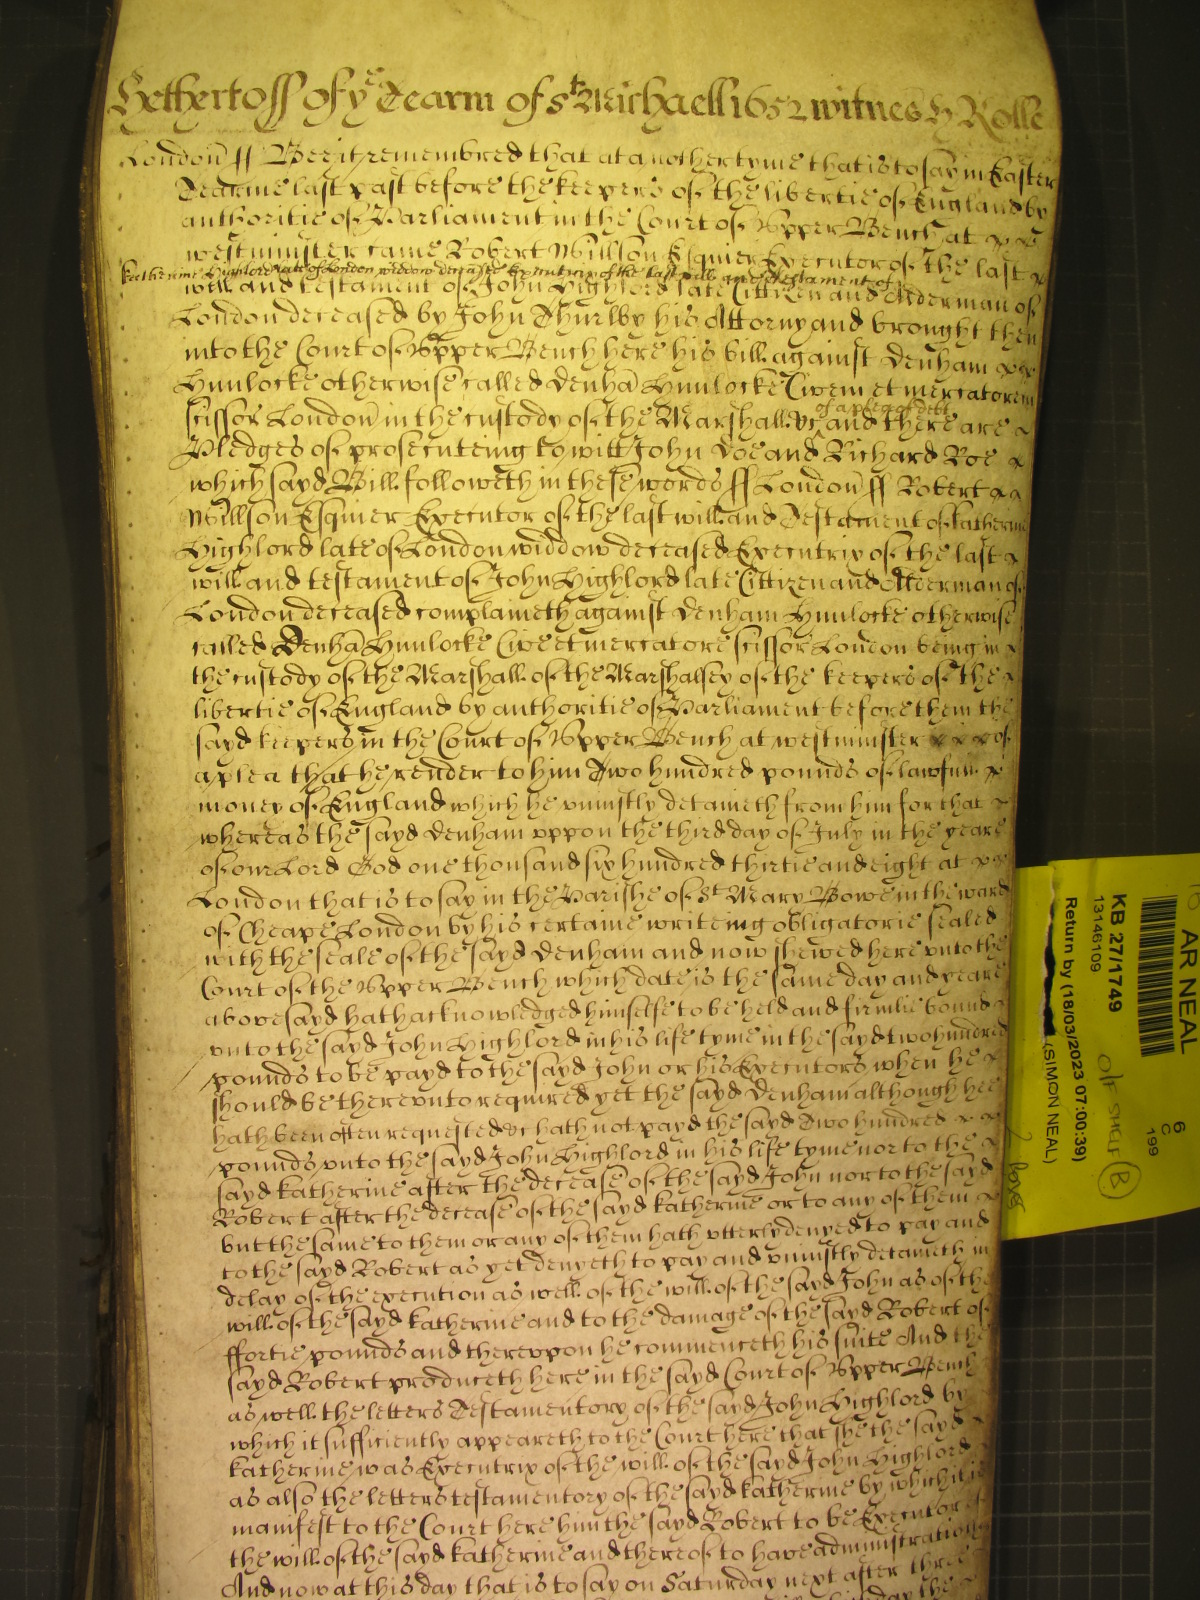 Hethertoff of ye Tearm of St Michaell 1652 witnes H Rolle
London ff Bee it remembred that at another tyme that is to say in Easter
Tearme last past before the keepers of the libertie of England by
authoritie of Parliament in the Court of Upper Bench at
westminster came Robert Willson Esquier Executor of the last
Katherine Highlord late of London widdow deceased Executrix of the last will and testament of
will and testament of John Highlord late Cittizen and Alderman of
London deceased by John Thurlby his Attorny and brought then
into the Court of Upper Bench here his bill against Denham
Hunlocke otherwise called Denhā Hunlocke Civem et mercatorem
of a plea of debt
scissor London in the custody of the Marshall &c and there are
Pledges of prosecuteing to witt John Doe and Richard Roe
which sayd Bill followeth in these words ff London ff Robert
Willson Esquier Executor of the last will and Testament of Katherine
Highlord late of London widdow deceased Executrix of the last
will and testament of John Highlord late Cittizen and Alderman of
London deceased complaineth against Denham Hunlocke otherwise
called Denhā Hunlocke Cive et mercatore scissor London being in
the custody of the Marshall of the Marshalsey of the keepers of the
libertie of England by authoritie of Parliament before them the
sayd keepers in the Court of Upper Bench at westminster of
a plea that he render to him Two hundred pounds of lawfull
money of England which he uniustly detaineth from him for that
whereas the sayd Denham uppon the third day of July in the yeare
of our Lord God one thousand six hundred thirtie and eight at
London that is to say in the Parishe of St Mary Bowe in the ward
of Cheape London by his certaine writeing obligatorie sealed
with the seale of the sayd Denham and now shewed here unto the
Court of the Upper Bench which date is the same day and yeare
abovesayd hath acknowledged himselfe to be held and firmlie bound
unto the sayd John Highlord in his life tyme in the sayd two hundred
pounds to be payd to the sayd John or his Executors when he
should be thereunto required yet the sayd Denham although hee
hath been often requested &c hath not payd the sayd Two hundred
pounds unto the sayd John Highlord in his life tyme nor to the
sayd Katherine after the decease of the sayd John nor to the sayd
Robert after the decease of the sayd Katherine or to any of them
but the same to them or any of them hath utterly denyed to pay and
to the sayd Robert as yet denyeth to pay and uniustly detaineth in
delay of the execution as well of the will of the sayd John as of the
will of the sayd Katherine and to the damage of the sayd Robert of
ffortie pounds and thereupon he commenceth his suite And the
sayd Robert produceth here in the sayd Court of Upper Bench
as well the letters Testamentory of the sayd John Highlord by
which it sufficiently appeareth to the Court here that she the sayd
Katherine was Executrix of the will of the sayd John Highlord
as also the letters testamentory of the sayd Katherine by which it is
manifest to the Court here him the sayd Robert to be Executor
the will of the sayd Katherine and thereof to have administration
And now at this day that is to say on Saturday next after three
AR NEAL
KB 27/1749
13146109
Return by (18/03/2023 07:00:39)
(SIMON NEAL)
6
C
199
O/F SHELF B